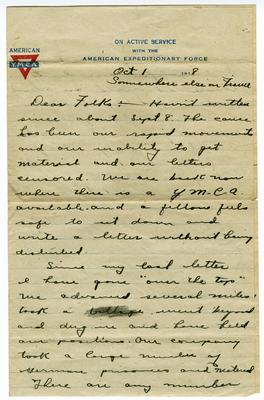 AMERICAN
Y.M.C.A.
ON ACTIVE SERVICE
WITH THE
AMERICAN EXPEDITIONARY FORCE
Oct 1 1918
Somewhere else in France
Dear Folks:- Haven't written
since about Sept 8. The cause
has been our rapid movements
and our inability to get
material and our letters
censored. We are back now
where there is a Y M.C.A.
available and a fellow feels
safe to sit down and
write a letter without being
disturbed.
Since my last letter
I have gone "over the top"
We advanced several miles
took a village went beyond
and dug in and have held
our positions. Our company
took a large number of
German prisoners and material
There are any number